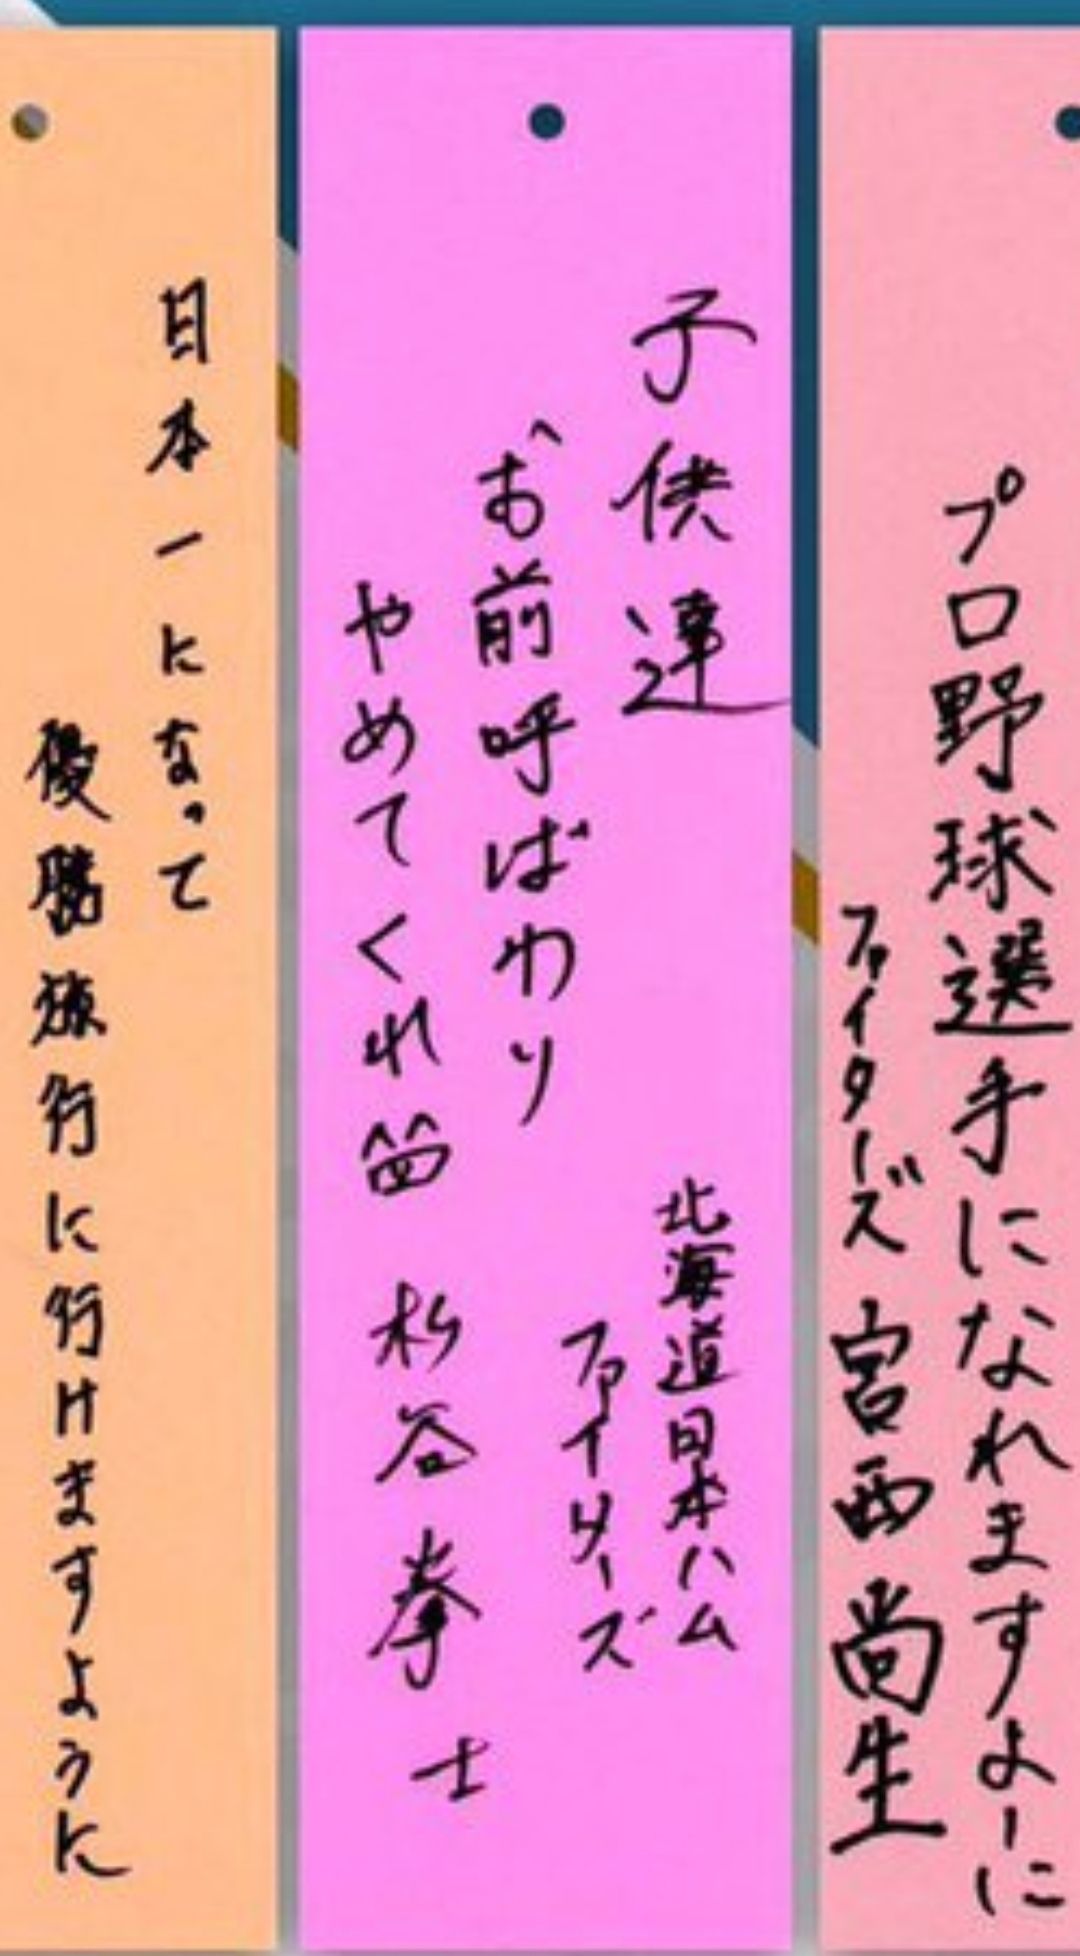 プロ野球選手になれますよーに
ファイターズ 宮西尚生
子供達
お前呼ばわり
やめてくれ
北海道日本ハム
ファイターズ
杉谷拳士
日本一になって
優勝旅行に行けますように